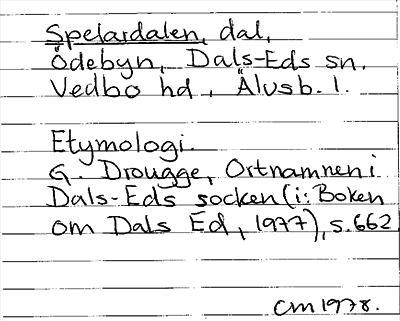 Spelardalen, dal,
Ödebyn, Dals-Eds sn.
Vedbo hd, Älvsb. l.
Etymologi.
G. Drougge, Ortnamnen i
Dals-Eds socken (i: Boken
om Dals Ed, 1977), s. 662
CM 1978.